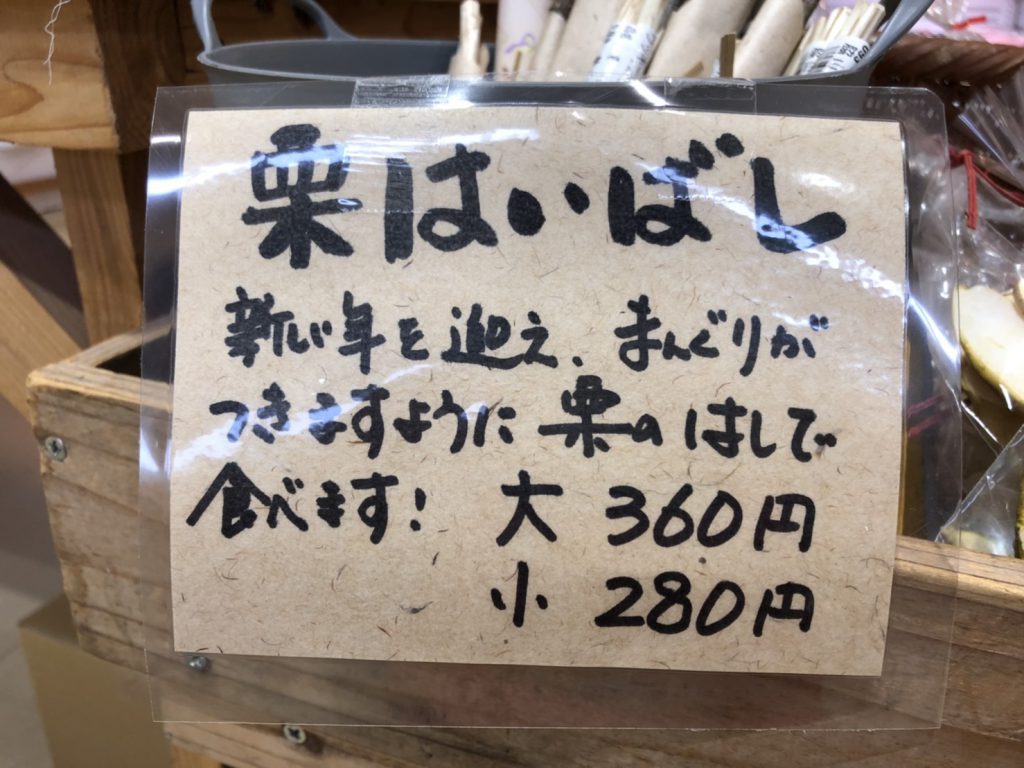 栗はいばし
新しい年を迎え、まんぐりが
つきますように栗のはしで
食べます! 大 360円
小 280円